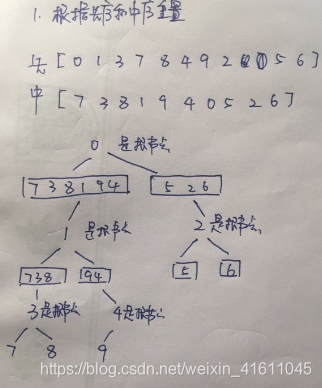 1. 根据先序和中序重置
先 [ 0 1 3 7 8 4 9 2 5 6 ]
中 [ 7 3 8 1 9 4 0 5 2 6 ]
0 是根节点
7 3 8 1 9 4 5 2 6
1 是根节点 2 是根节点
7 3 8 9 4 5 6
3 是根节点 4 是根节点
7 8 9
https://blog.csdn.net/weixin_41611045